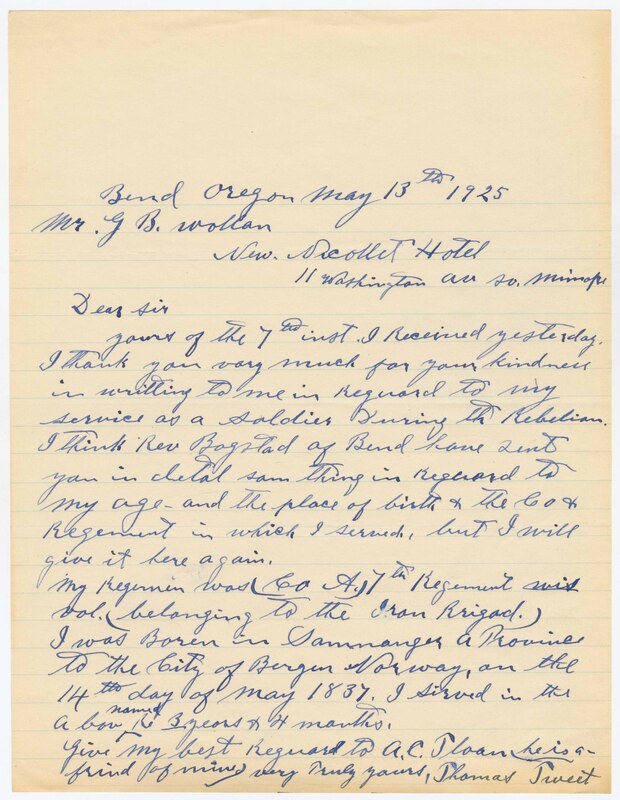 Bend Oregon May 13th 1925
Mr. G B. Wollan
New. Nicollet Hotel
11 Washington av so. Minnape
Dear sir
yours of the 7th inst. I Received yesterday.
I thank you vary much for your kindness
in writting to me in Reguard to my
service as a soldier During th Rebelion.
I think Rev Bogstad of Bend have sent
you in detal som thing in Reguard to
my age - and the place of birth & the Co &
Regement in which I served, but I will
give it here again.
My Regemen was (Co A.) 7th Regement wis
vol. (belonging to the Iron Brigad.)
I was Boren in Samnanger a Province
to the City of Bergen Norway, on the
14th day of May 1837. I served in the
a bov named Re 3 years & 4 months.
Give my best Reguard to A.C. Floan (he is a-
frind of mine) very Truly yours, Thomas Tweet